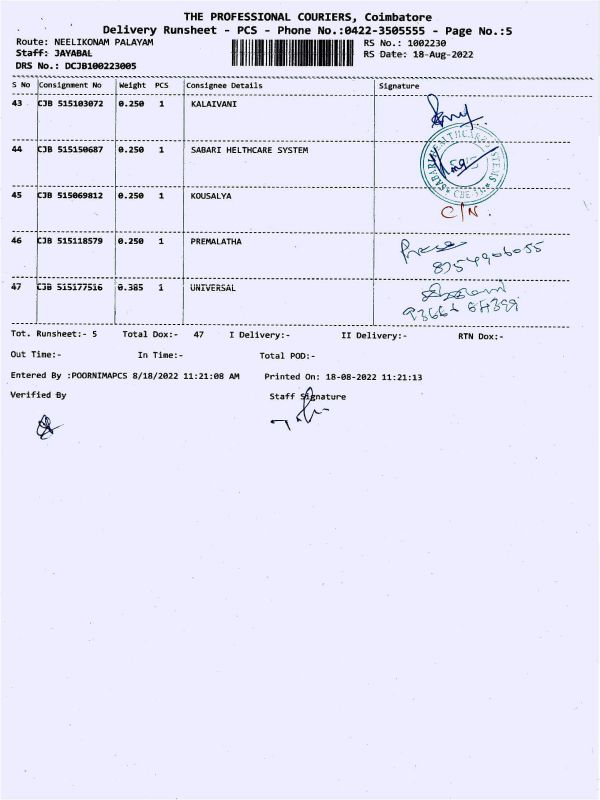 THE PROFESSIONAL COURIERS, Coimbatore
Delivery Runsheet - PCS - Phone No.:0422-3505555 - Page No.:5
Route: NEELIKONAM PALAYAM
RS No.: 1002230
Staff: JAYABAL
RS Date: 18-Aug-2022
DRS No.: DCJB100223005
S No Consignment No Weight PCS Consignee Details Signature
43 CJB 515103072 0.250 1 KALAIVANI
44 CJB 515150687 0.250 1 SABARI HELTHCARE SYSTEM
45 CJB 515069812 0.250 1 KOUSALYA
C/N.
46 CJB 515118579 0.250 1 PREMALATHA
8754906055
47 CJB 515177516 0.385 1 UNIVERSAL
Tot. Runsheet:- 5 Total Dox:- 47 I Delivery:- II Delivery:- RTN Dox:-
Out Time:- In Time:- Total POD:-
Entered By :POORNIMAPCS 8/18/2022 11:21:08 AM Printed On: 18-08-2022 11:21:13
Verified By Staff Signature